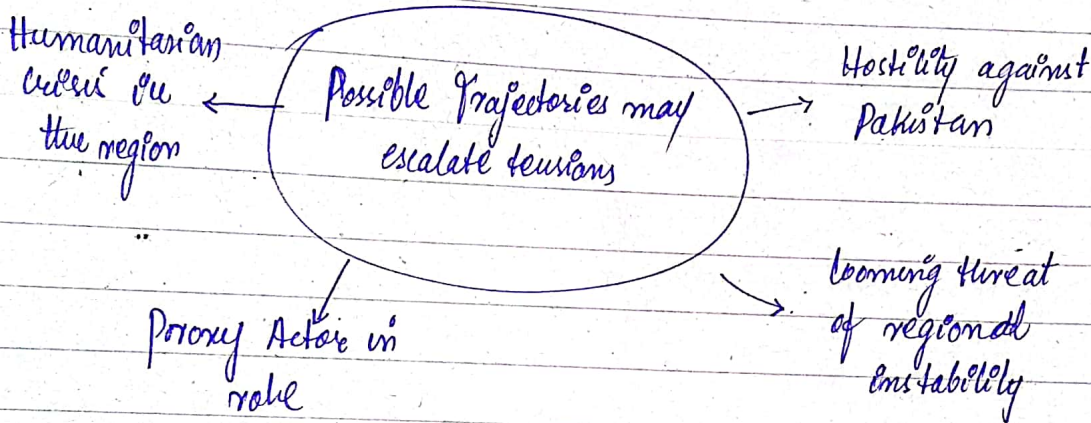 Humanitarian
crisis in
the region
Possible Trajectories may
escalate tensions
Hostility against
Pakistan
Proxy Actor in
role
looming threat
of regional
instability